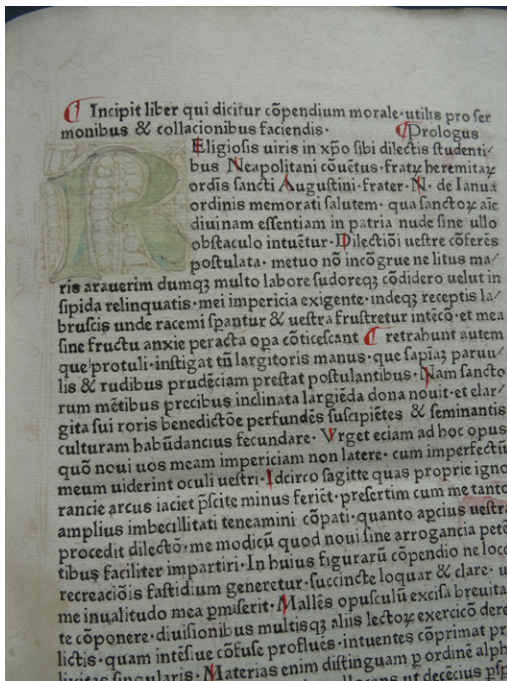 Incipit liber qui dicitur cōpendium morale·utilis pro ser
monibus & collacionibus faciendis· Prologus
REligiosis uiris in xp̄o sibi dilectis studenti⸗
bus Neapolitani cōuētus·fratꝝ heremitaꝝ
ordīs sancti Augustini·frater·N· de Ianua
ordinis memorati salutem· qua sanctoꝝ aīe
diuinam essentiam in patria nude sine ullo
obstaculo intuētur·Dilectiōi uestre cōferēs
postulata· metuo nō incōgrue ne litus ma⸗
ris arauerim dumqꝫ multo labore sudoreqꝫ cōdidero uelut in
sipida relinquatis·mei impericia exigente·indeqꝫ receptis la⸗
bruscis unde racemi spantur & uestra frustretur intēcō·et mea
sine fructu anxie peracta opa cōticescant retrahunt autem
que protuli·instigat tn̄ largitoris manus·que sapiaꝫ paruu⸗
lis & rudibus prudēciam prestat postulantibus·Nam sancto
rum mētibus precibus inclinata largiēda dona nouit·et elar⸗
gita sui roris benedictōe perfundēs suscipiētes & seminantis
culturam habūdancius fecundare· Vrget eciam ad hoc opus
quō noui uos meam impericiam non latere· cum imperfectū
meum uiderint oculi uestri·Idcirco sagitte quas proprie igno
rancie arcus iaciet p̄scite minus feriēt·presertim cum me tanto
amplius imbecillitati teneamini cōpati·quanto apcius uestra
procedit dilectō·me modicū quod noui sine arrogancia petē
tibus faciliter impartiri·In huius figurarū cōpendio ne loc
recreaciōis fastidium generetur·succincte loquar & clare· u
me inualitudo mea pmiserit·Mallēs opusculū excisa breuita
te cōponere·diuisionibus multisqꝫ aliis lectoꝝ exercicō dere
lictis·quam intēsiue cōfuse profluēs·intuentes cōprimat pr
singularis·Materias enim distinguam p ordinē alph
ut decēcius